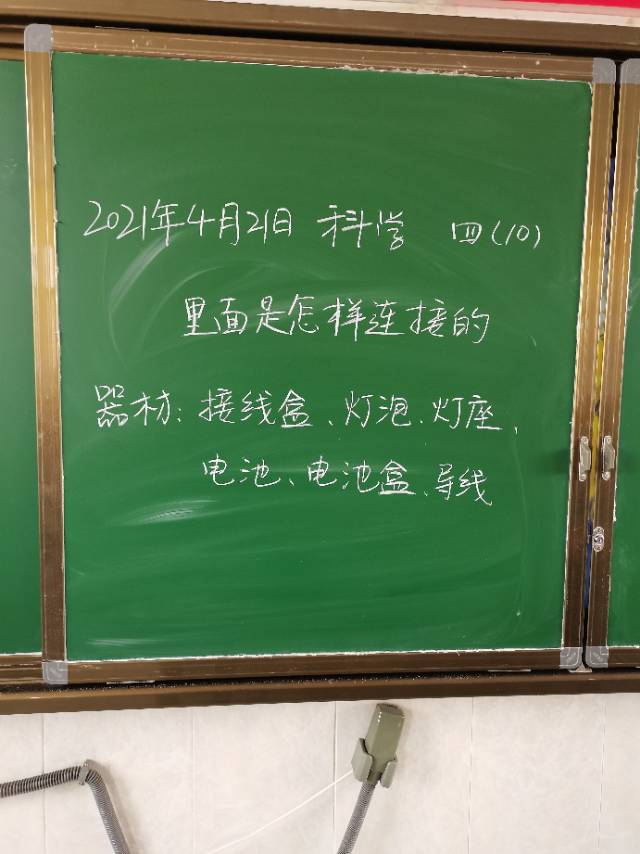 2021年4月21日 科学 四(10)
里面是怎样连接的
器材: 接线盒、灯泡、灯座、
电池、电池盒、导线